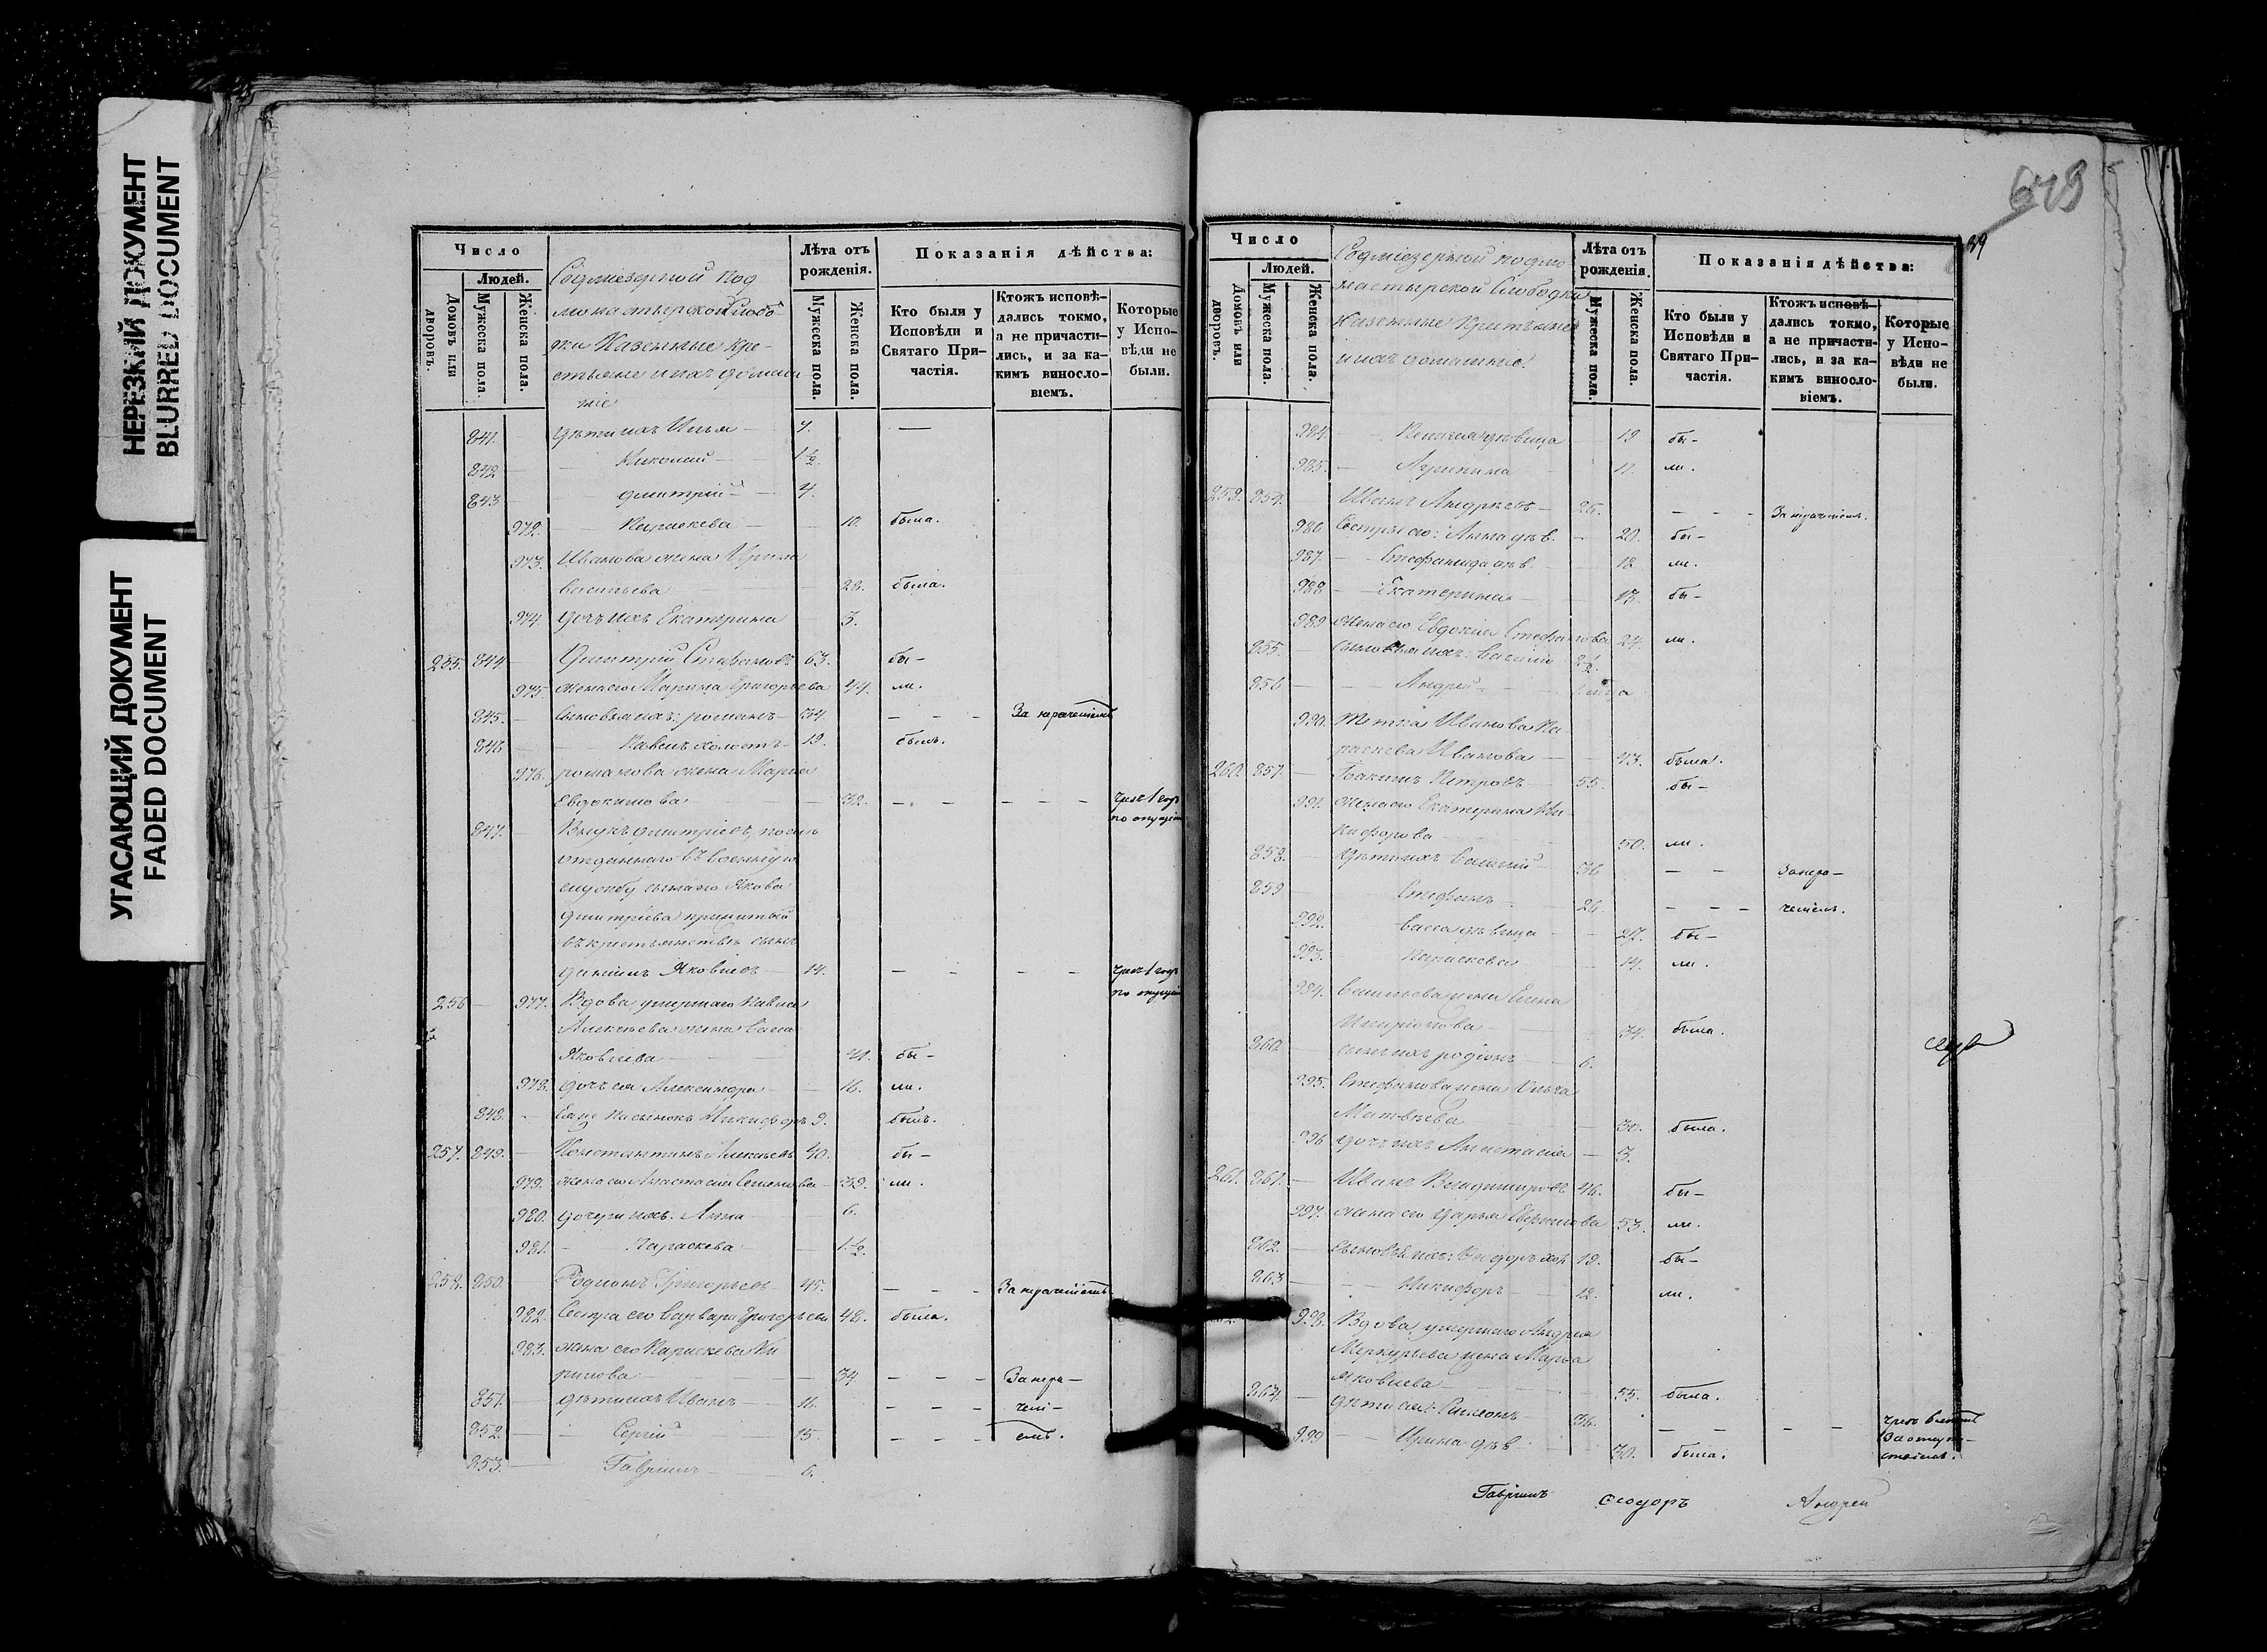 НЕРЕЗКИЙ ДОКУМЕНТ
BLURRED DOCUMENT
УГАСАЮЩИЙ ДОКУМЕНТ
FADED DOCUMENT
Число
Людей.
Домовъ или дворовъ.
Мужеска пола.
Женска пола.
Седміезерной Под
монастырской Слобо-
дки Казенные кре-
стьяне и ихъ домаш
ніе
Лѣта отъ рожденія.
Мужеска пола.
Женска пола.
Показанія дѣйства:
Кто были у Исповѣди и Святаго При-частія.
Ктожъ исповѣ-дались токмо, а не причасти-лись, и за ка-кимъ винослo-віемъ.
Которые у Испо-вѣди не были.
841. дѣти ихъ Илья 7. —
842 Николай 1½.
843 Дмитрій 4.
972. Параскева 10. была.
973. Иванова жена Ирина
Васильева 28. была.
974. дочь ихъ Екатерина 3.
255. 844. Дмитрій Стефановъ 63. бы-
975. жена его Марина Григорьева 44. ли.
845. сыновья ихъ: Романъ 34. - - - За нерачениемъ
846 Павелъ холостъ 19. былъ.
976. Романова жена Марія
Евдокимова 32. - - - - - чрезъ 1 годъ
по опущен
847. Внукъ Дмитріевъ, послѣ
отданнаго въ военную
службу сына его Якова
Дмитріева принятый
въ крестьянство сынъ
Данилъ Яковлев 14. - - - - чрезъ 1 годъ
по опущен
256 977. Вдова умершаго Павла
Алексѣева жена Васса
Яковлева 41. бы-
978. дочь ея Александра 16. ли.
848. Ея же пасынокъ Никифоръ 9. былъ.
257. 849. Константинъ Алексѣевъ 40. бы-
979. жена его Анастасія Семенова 39. ли.
980. дочери ихъ: Анна 6.
981. Параскева 1½.
258. 850. Родіонъ Григорьевъ 45. - - - За нерачениемъ
982. Сестра его Варвара Григорьева 48. была.
983. жена его Параскева Ки
рилова 34. - - - За нера-
851. дѣти ихъ Иванъ 16. - - - чені-
852. Сергій 15. - - - емъ.
853. Гаврилъ 6.
649
39
Число
Людей.
Домовъ или дворовъ.
Мужеска пола.
Женска пола.
Седміезерной подмо
настырской Слободки
казенные Крестьяне
и ихъ домашніе.
Лѣта отъ рожденія.
Мужеска пола.
Женска пола.
Показанія дѣйства:
Кто были у Исповѣди и Святаго При-частія.
Ктожъ исповѣ-дались токмо, а не причасти-лись, и за ка-кимъ винослo-віемъ.
Которые у Испо-вѣди не были.
984. Пелагея дѣвица 19 бы-
985. Агрипина 11. ли.
259. 854. Иванъ Андреевъ 25. - - - За нерачениемъ.
986 Сестры его: Анна дѣв. 20. бы-
987. Стефанида дѣв 18. ли.
988 Екатерина 13. бы-
989 жена его Евдокія Стефанова 24. ли.
855. сыновья ихъ: Василій 2½.
856 Андрей
990. Тетка Иванова Па-
раскева Иванова 43. была.
260. 857. Іоакимъ Петровъ 55. бы-
991. Жена его Екатерина Ни-
кифорова 50. ли.
858. дѣти ихъ Василій 36 - - За нера-
859 Стефанъ 26. - - - ченіемъ.
992. Васса дѣвица 27. бы-
993. Параскева 14. ли.
994. Васильева жена Елена
Иларіонова 34. была.
860. сынъ ихъ Родіонъ 6.
995. Стефанова жена Ольга
Матвѣева 30. была.
996 дочь ихъ Анастасія 3.
261. 861. Иванъ Владиміровъ 46. бы-
997. жена его Дарья Ефремова 53. ли.
862. сыновья ихъ: Феодоръ хол 19. бы-
863 Никифоръ 12. ли.
998. Вдова умершаго Андрея
Меркурьева жена Марѳа
Яковлева 55. была.
864. дѣти ея: Симеонъ 36. - - - -
999 Ирина дѣв 30. была.
Гавріилъ Ѳеодоръ Андрей